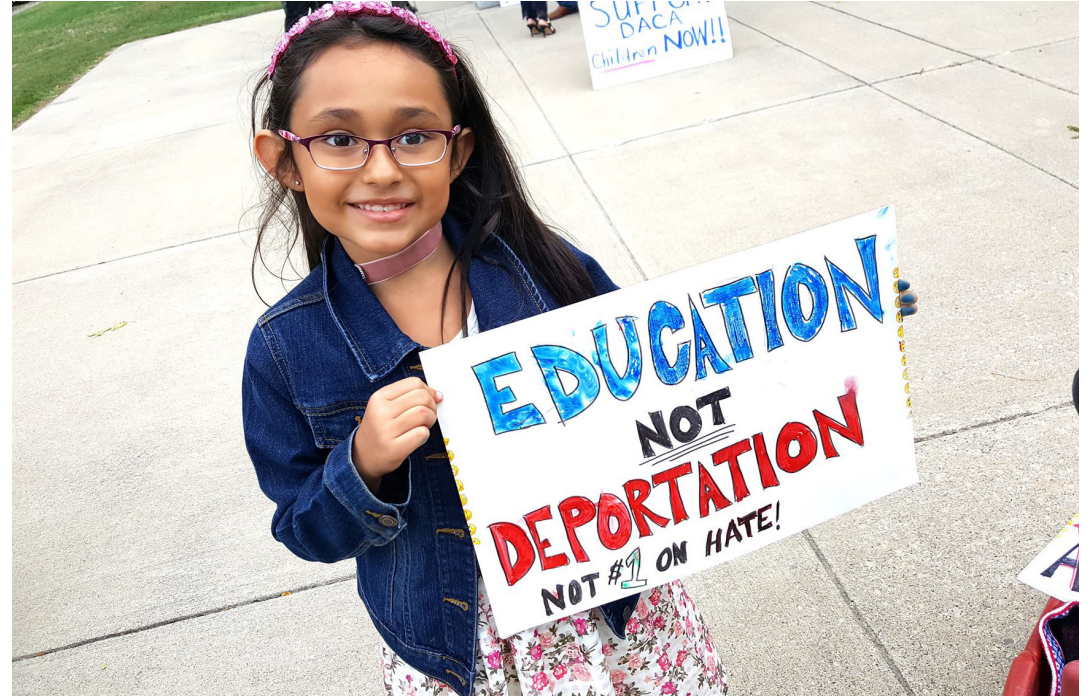 SUPPORT
DACA
Children NOW!!
EDUCATION
NOT
DEPORTATION
NOT #1 ON HATE!
A